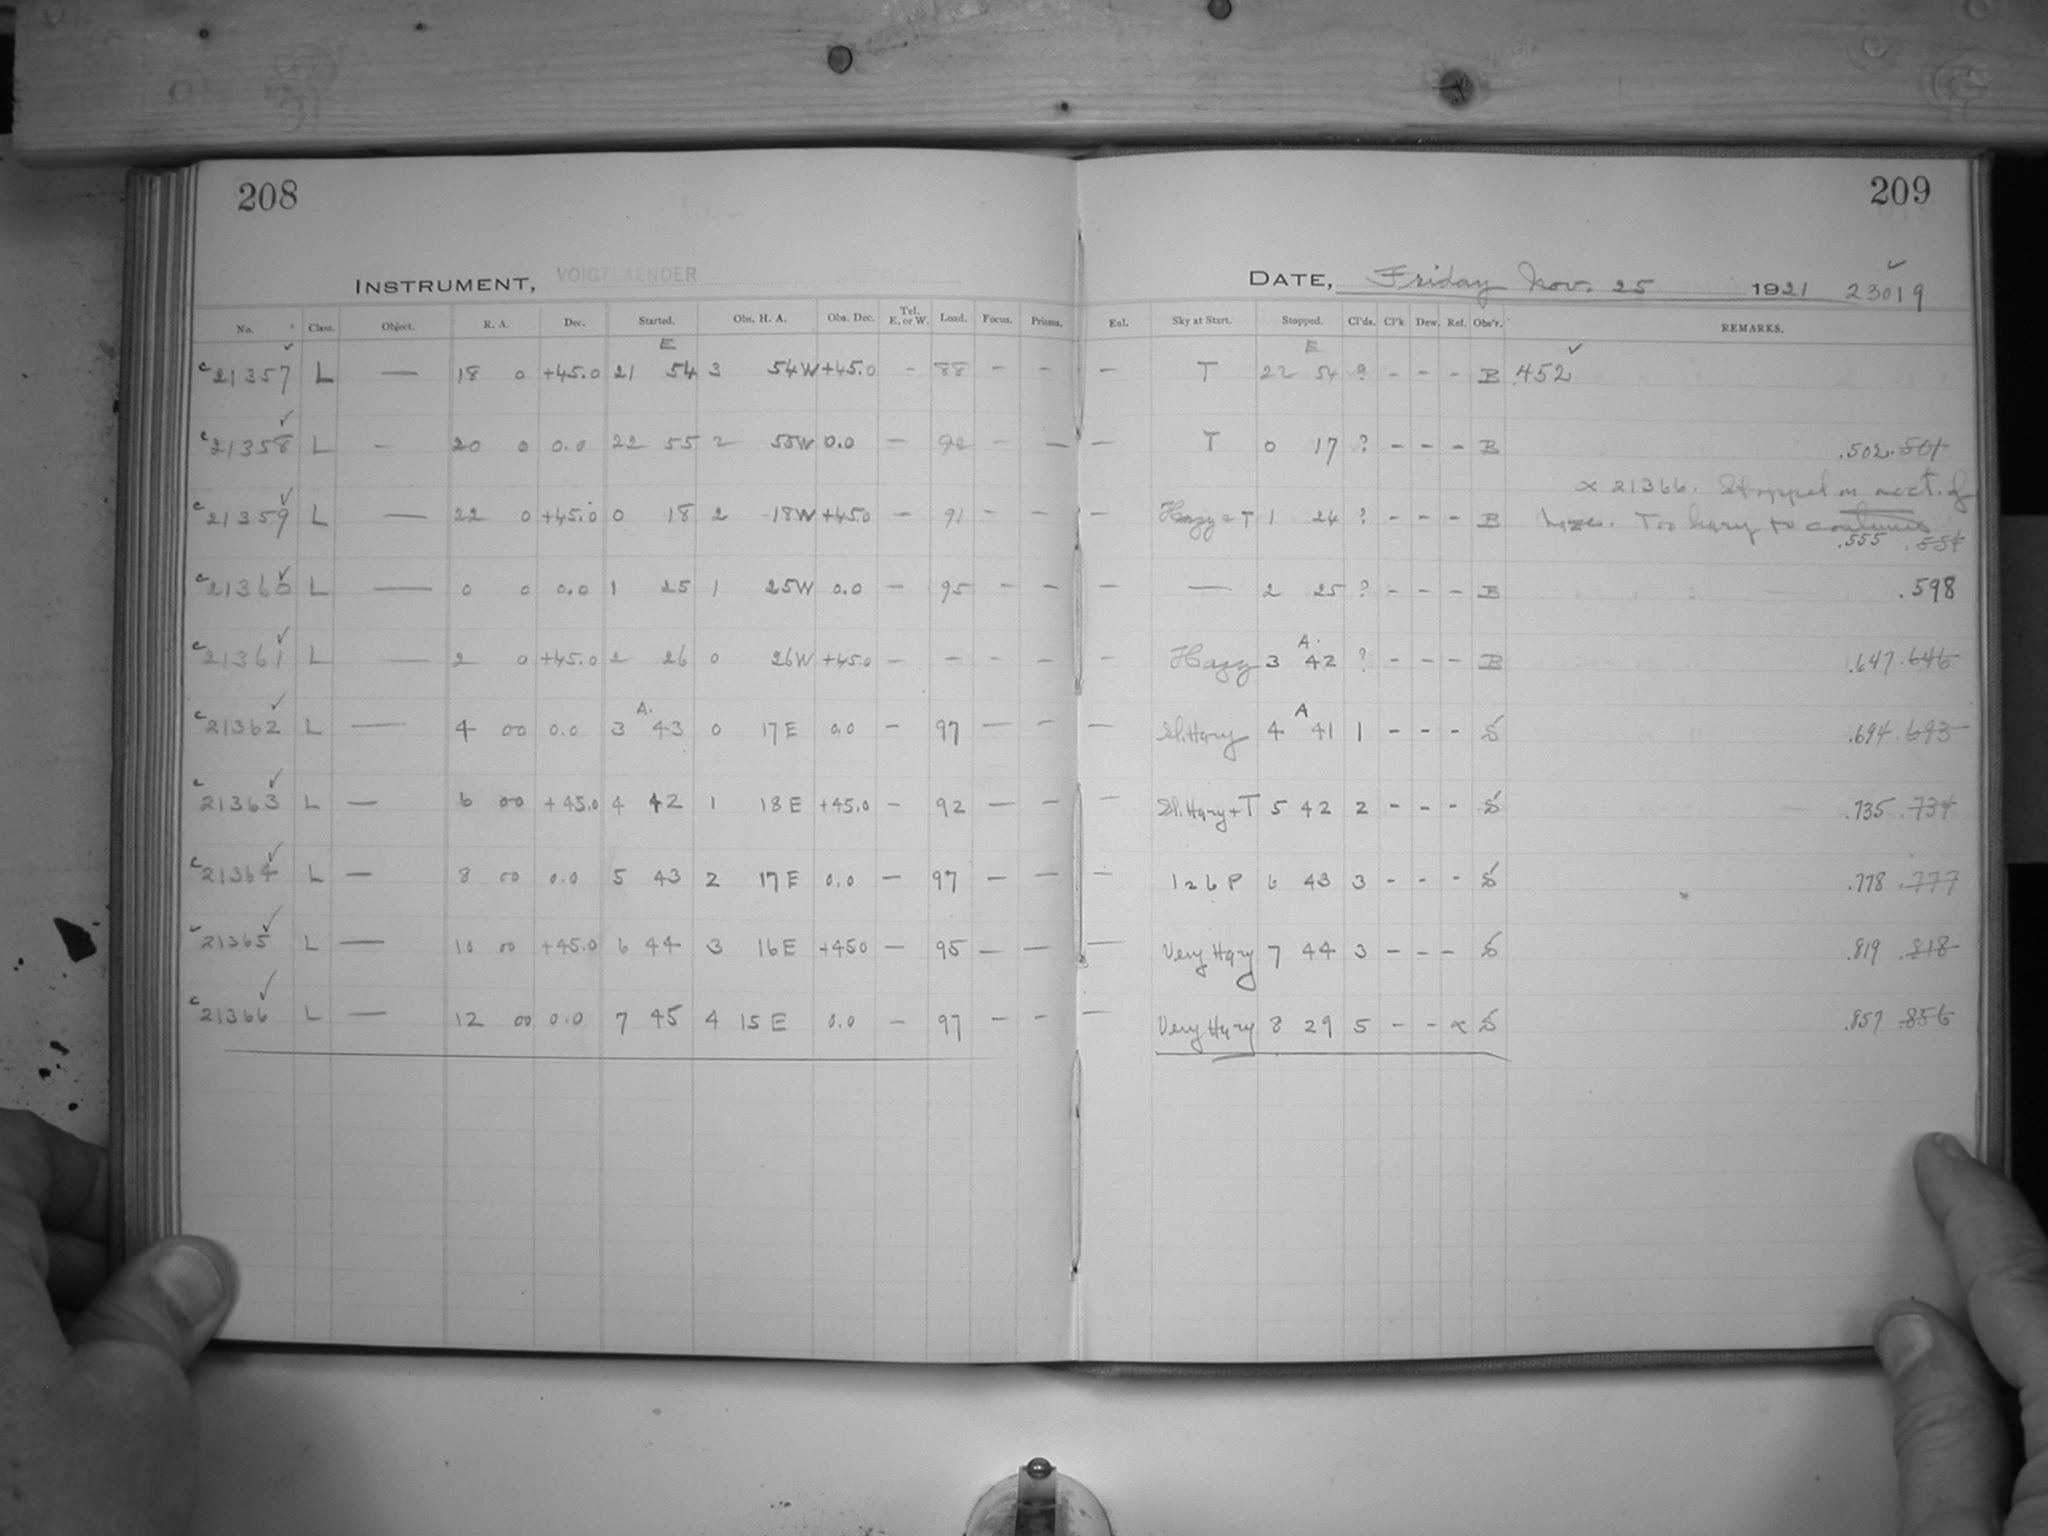 208
209
INSTRUMENT, VOIGTLAENDER
DATE, Friday Nov. 25 1921 23019
No. Class. Object. R. A. Dec. Started. Obs. H. A. Obs. Dec. Tel. E. or W. Load. Focus. Prisms. Enl. Sky at Start. Stopped. Cl'ds. Cl'k Dew. Ref. Obs'r. REMARKS.
E E
c 21357 L — 18 0 +45.0 21 54 3 54W +45.0 - 88 - - - T 22 54 ? - - - B .452
c 21358 L - 20 0 0.0 22 55 2 55W 0.0 - 92 - - - T 0 17 ? - - - B .502 .501
α 21366. Stopped on acct. of
c 21359 L — 22 0 +45.0 0 18 2 18W +45.0 - 91 - - - Hazy + T 1 24 ? - - - B haze. Too hazy to continue
.555 .554
c 21360 L — 0 0 0.0 1 25 1 25W 0.0 - 95 - - - — 2 25 ? - - - B .598
A.
c 21361 L — 2 0 +45.0 2 26 0 26W +45.0 - - - - - Hazy 3 42 ? - - - B .647 .646
A. A
c 21362 L — 4 00 0.0 3 43 0 17E 0.0 - 97 - - - Sl. Hazy 4 41 1 - - - S .694 .693
c 21363 L — 6 00 +45.0 4 42 1 18E +45.0 - 92 - - - Sl. Hazy + T 5 42 2 - - - S .735 .734
c 21364 L — 8 00 0.0 5 43 2 17E 0.0 - 97 - - - 126P 6 43 3 - - - S .778 .777
c 21365 L — 10 00 +45.0 6 44 3 16E +450 - 95 - - - Very Hazy 7 44 3 - - - S .819 .818
c 21366 L — 12 00 0.0 7 45 4 15E 0.0 - 97 - - - Very Hazy 8 29 5 - - α S .857 .856